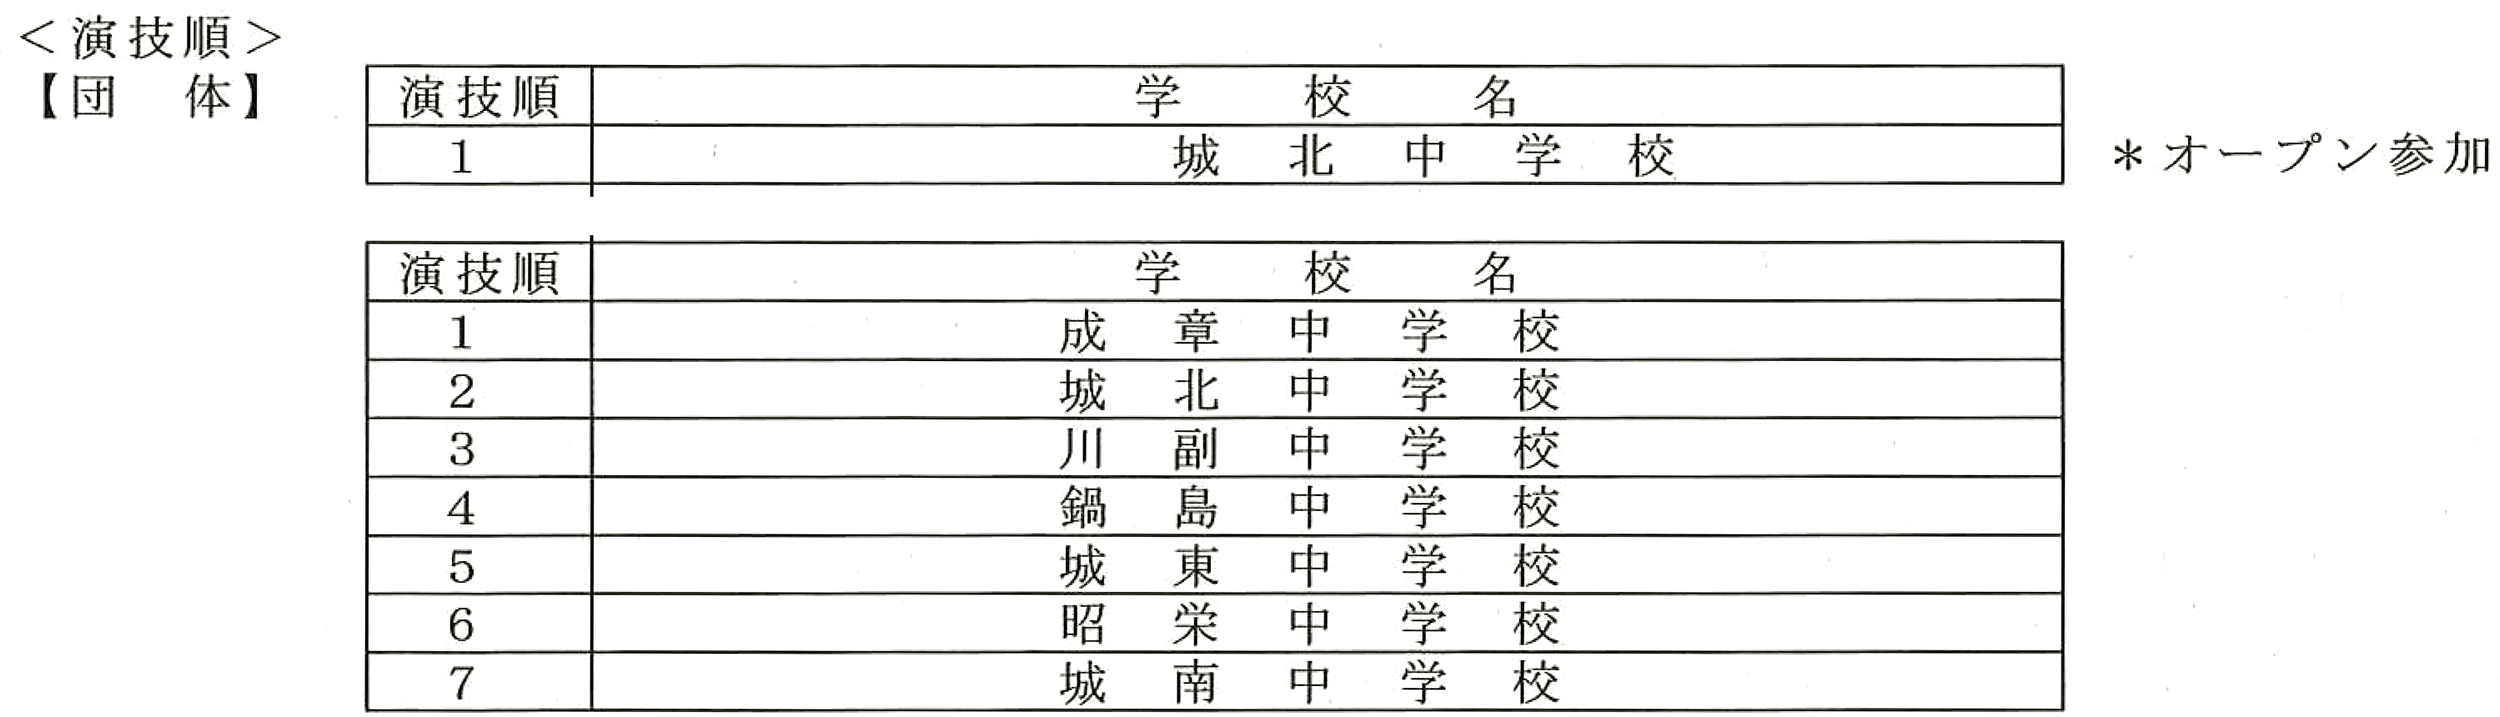 ＜演技順＞
【団　体】
演技順　学　校　名
1　城北中学校　＊オープン参加
演技順　学　校　名
1　成章中学校
2　城北中学校
3　川副中学校
4　鍋島中学校
5　城東中学校
6　昭栄中学校
7　城南中学校